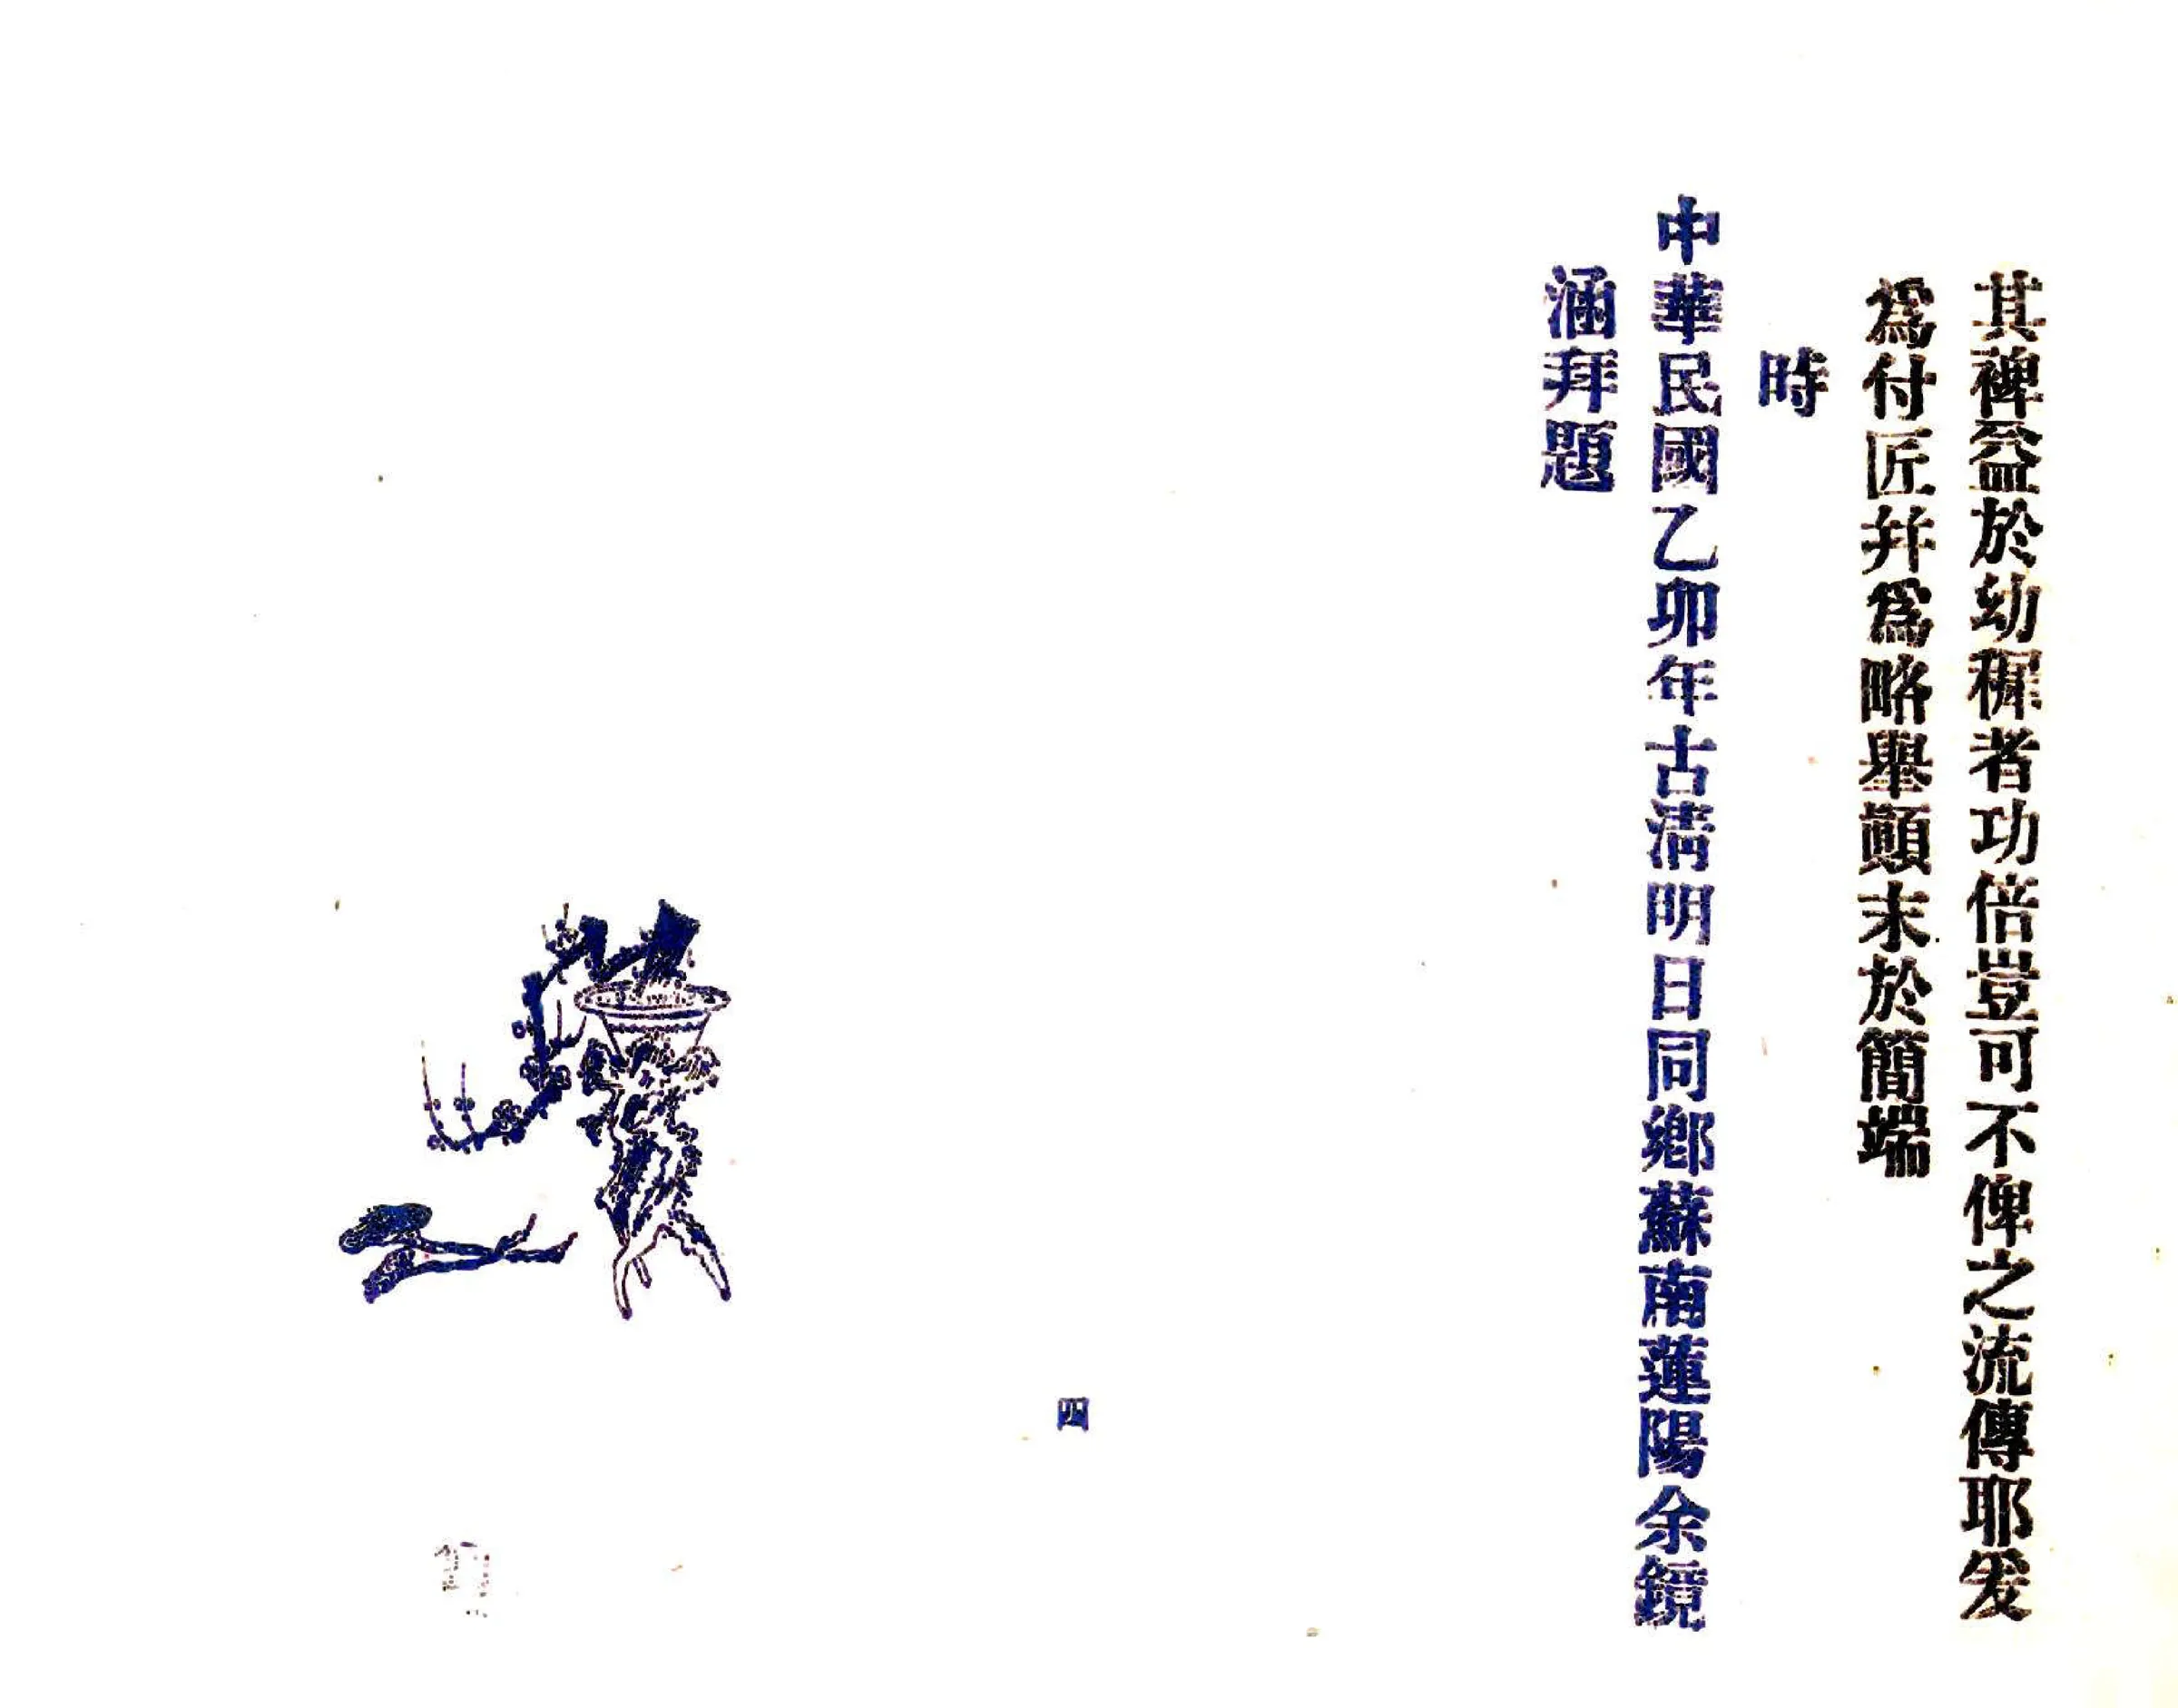 其裨益於幼穉者功倍豈可不俾之流傳耶爰
爲付匠幷爲略舉顚末於簡端
時
中華民國乙卯年古清明日同鄉蘇南蓮陽余鏡
涵拜題
四